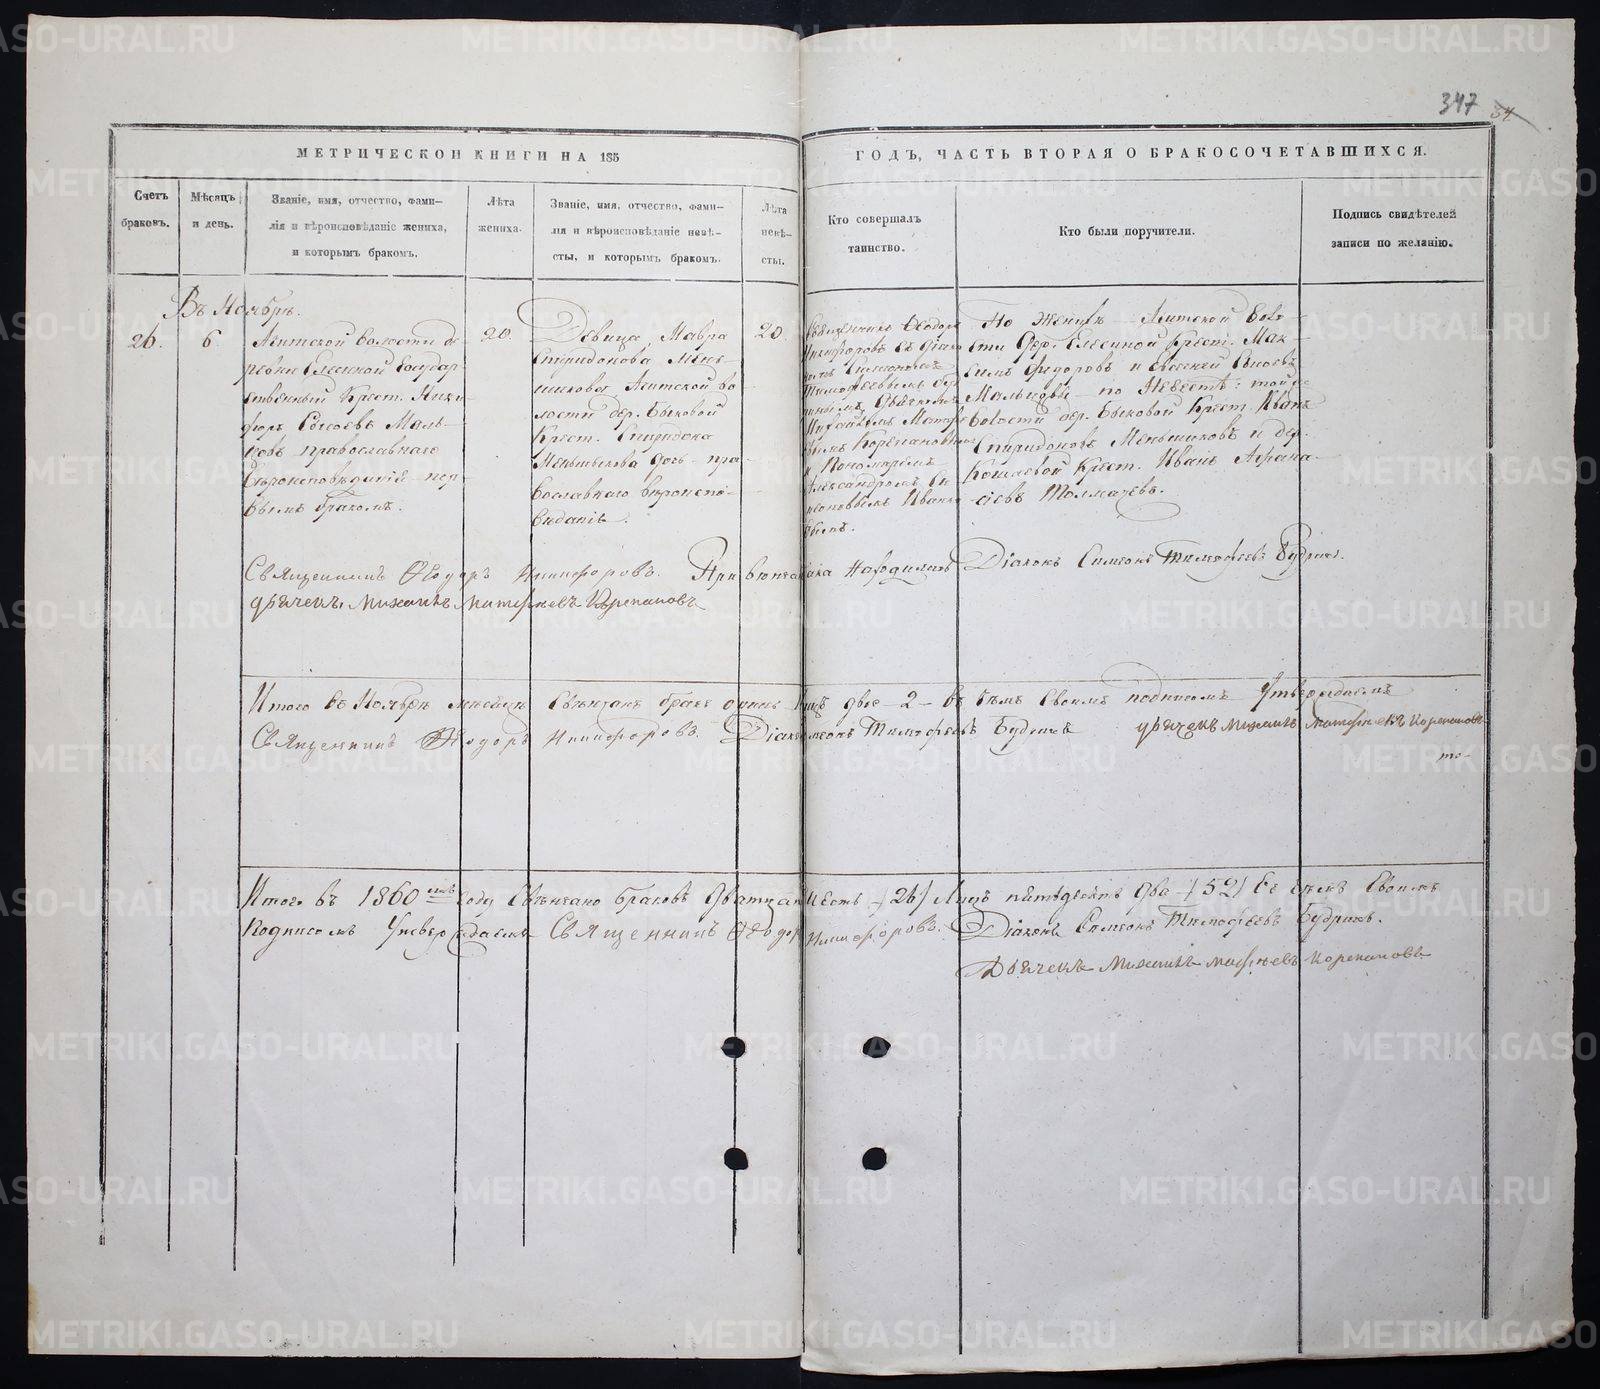 347 34
МЕТРИЧЕСКОИ КНИГИ НА 185
ГОДЪ, ЧАСТЬ ВТОРАЯ О БРАКОСОЧЕТАВШИХСЯ.
Счетъ
браковъ.
Мѣсяцъ
и день.
Званіе, имя, отчество, фами-
лія и вѣроисповѣданіе жениха,
и которымъ бракомъ.
Лѣта
жениха.
Званіе, имя, отчество, фами-
лія и вѣроисповѣданіе невѣ-
сты, и которымъ бракомъ.
Лѣта
невѣ-
сты.
Кто совершалъ
таинство.
Кто были поручители.
Подпись свидѣтелей
записи по желанію.
Въ Ноябрѣ.
26.
6
Ачитской волости де
ревни Елесиной Государ
ственный Крест. Ники
форъ Сысоевъ Маль-
цовъ православнаго
Вѣроисповѣданія пер-
вымъ бракомъ.
20.
Девица Мавра
Спиридонова Мень-
шикова Ачитской во
лости дер. Быковой
Крест. Спиридона
Меньшикова дочь пра-
вославнаго вѣроиспо-
веданія.
20.
Священникъ Феодоръ
Никифоровъ съ діако
номъ Симеономъ
Тимофеевымъ
Дьячкомъ
Михаиломъ Матфе
Корепановымъ
и Пономаремъ
Александромъ
По Женихѣ Ачитской воло-
сти дер. Елесиной Крест. Мак-
симъ Федоровъ и Евсевей Сысоевъ
Мальцовы по Невестѣ: той же
Волости дер. Быковой Крест. Иванъ
Спиридоновъ Меньшиковъ и дер.
Крест. Иванъ Афана-
сіевъ Толмачевъ.
Священникъ Феодоръ Никифоровъ. При венчаніи находились Діаконъ Симеонъ Тимофеевъ Будринъ.
дьячекъ Михаилъ Матфѣевъ Корепановъ
Итого въ Ноябрѣ месяце Свѣнчанъ бракъ одинъ лицъ двое - 2 - въ чемъ Своимъ подписомъ Утверждаемъ
Священникъ Феодоръ Никифоровъ. Діаконъ Симеонъ Тимофеевъ Будринъ дьячекъ Михаилъ Матфеевъ Корепановъ
Итого въ 1860мъ Году Свѣнчано браковъ дватцать шесть /26/ Лицъ пятьдесятъ два /52/ Въ чемъ Своимъ
Подписомъ Утверждаемъ Священникъ Феодоръ Никифоровъ. Діаконъ Симеонъ Тимофеевъ Будринъ.
Дьячекъ Михаилъ Матфѣевъ Корепановъ
METRIKI.GASO-URAL.RU